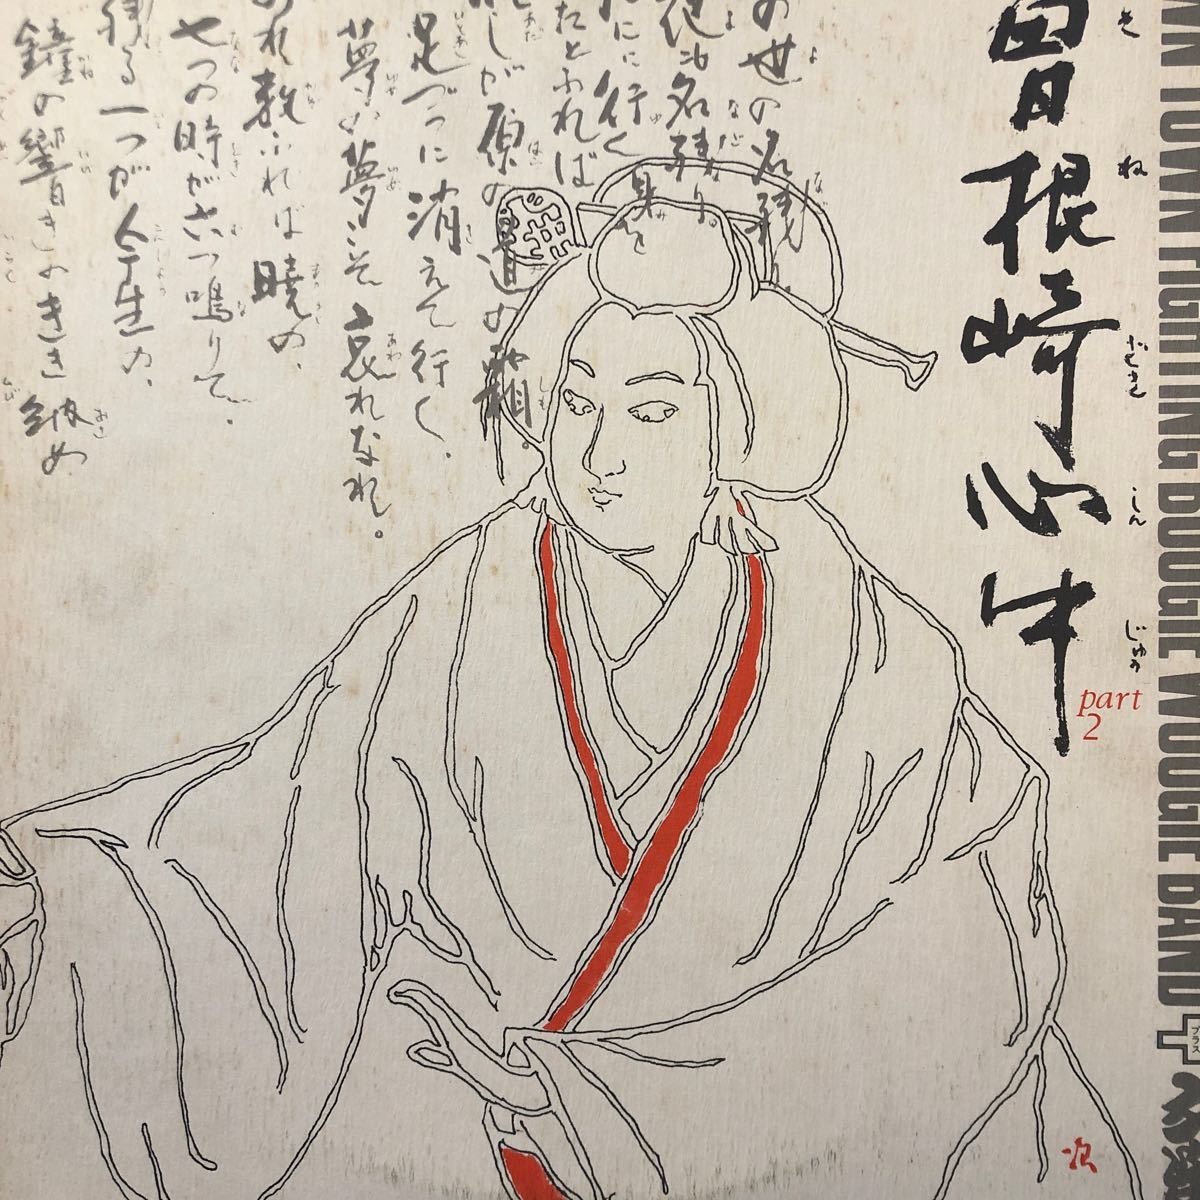 WN TOWN FIGHTING BOOGIE WOOGIE BAND
プラス
曽根崎心中
part
2
の世の名残り
も名残り
に行く身を
たとふれば
しが原の道の霜。
足づつに消えて行く、
夢の夢こそ哀れなれ。
れ数ふれば暁の、
七つの時が六つ鳴りて、
残る一つが今生の、
鐘の響きのきき納め